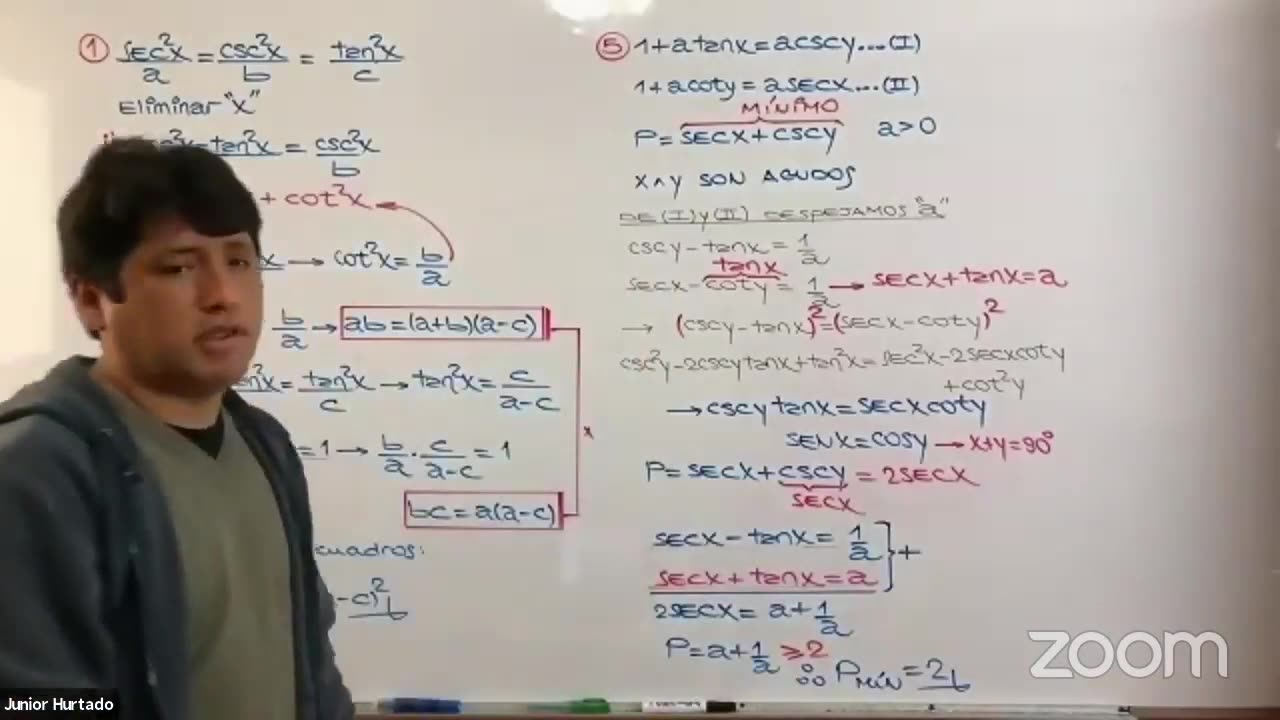 ① sec²x/a = csc²x/b = tan²x/c
Eliminar "x"
tan²x = csc²x/b
+ cot²x
→ cot²x = b/a
b/a → ab = (a+b)(a-c)
= tan²x/c → tan²x = c/a-c
= 1 → b/a . c/a-c = 1
x
bc = a(a-c)
cuadros:
-c)²
⑤ 1+atanx = acscy...(I)
1+acoty = asecx...(II)
MÍNIMO
P = secx+cscy a>0
x ∧ y SON AGUDOS
DE (I) y (II) DESPEJAMOS "a"
cscy - tanx = 1/a
tanx
secx - coty = 1/a → secx + tanx = a
→ (cscy - tanx)² = (secx - coty)²
csc²y - 2cscytanx + tan²x = sec²x - 2secxcoty
+ cot²y
→ cscytanx = secxcoty
senx = cosy → x+y = 90°
P = secx + cscy = 2secx
secx
secx - tanx = 1/a
+
secx + tanx = a
2secx = a + 1/a
P = a + 1/a ≥ 2
∴ Pmín = 2
zoom
Junior Hurtado